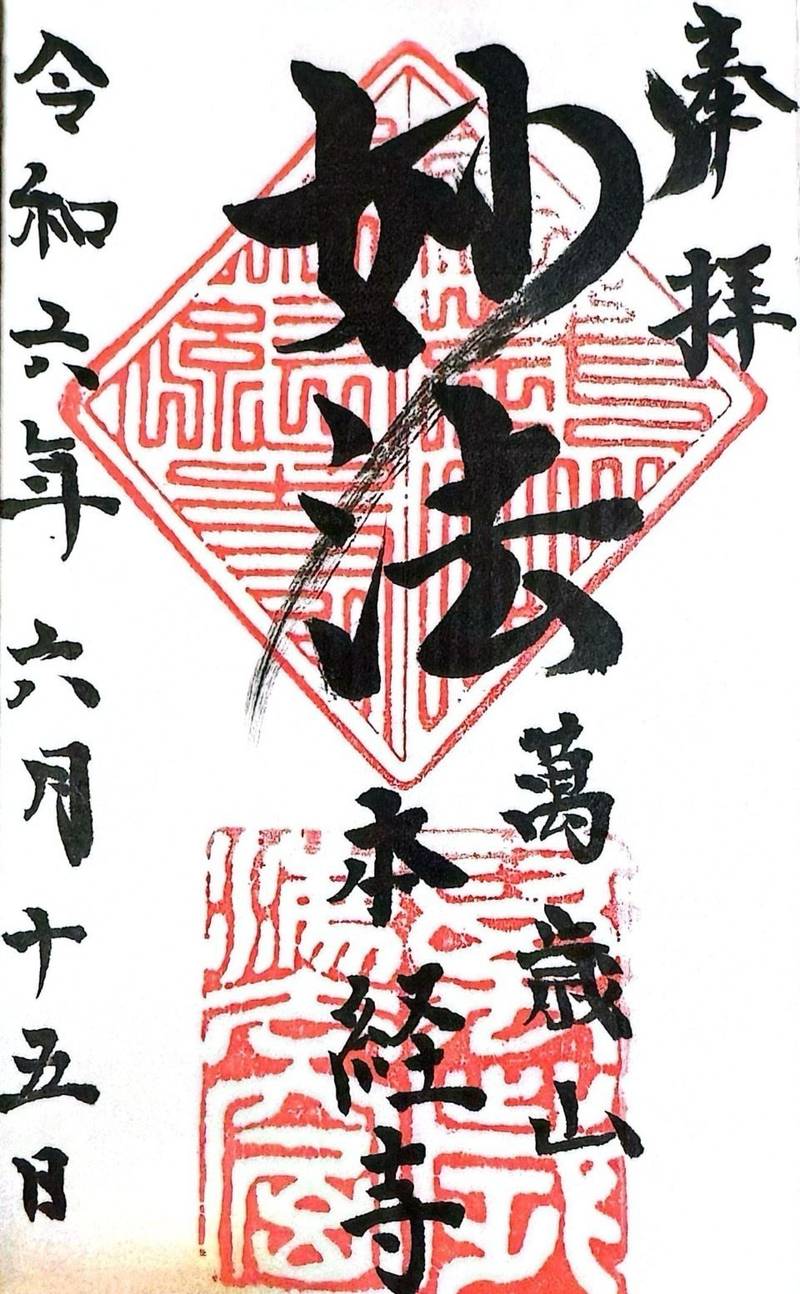 奉拝
妙法
萬歳山
本経寺
令和六年六月十五日